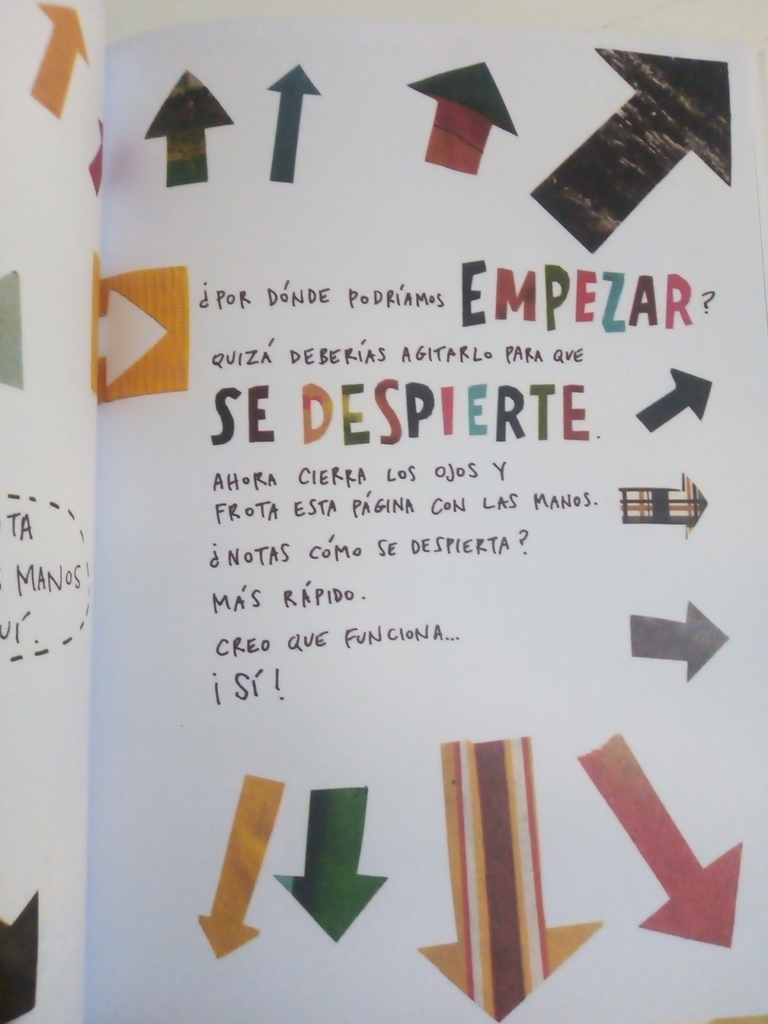 ¿POR DÓNDE PODRÍAMOS EMPEZAR?
QUIZÁ DEBERÍAS AGITARLO PARA QUE
SE DESPIERTE.
AHORA CIERRA LOS OJOS Y
FROTA ESTA PÁGINA CON LAS MANOS.
¿NOTAS CÓMO SE DESPIERTA?
MÁS RÁPIDO.
CREO QUE FUNCIONA...
¡SÍ!
MANOS